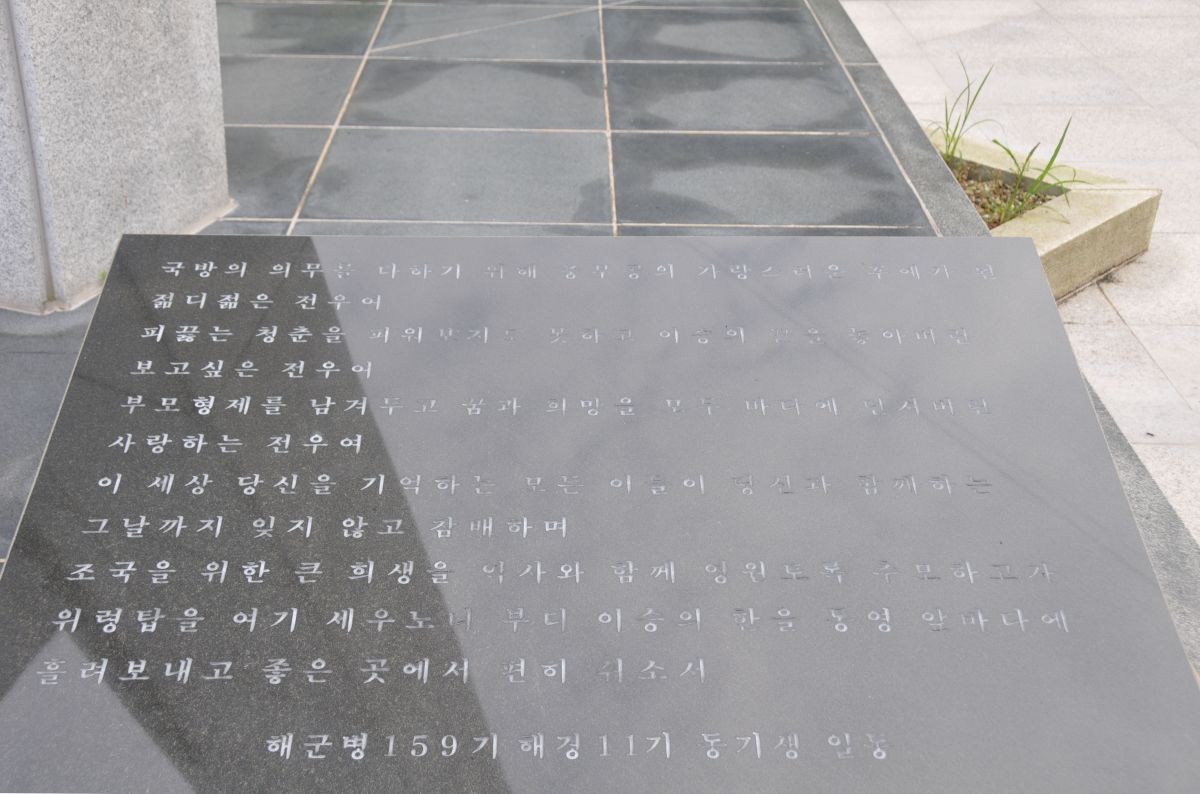 국방의 의무를 다하기 위해 충무공의 자랑스러운 후예가 된
젊디젊은 전우여
피끓는 청춘을 피워보지도 못하고 이승의 끈을 놓아버린
보고싶은 전우여
부모형제를 남겨두고 꿈과 희망을 모두 바다에 던져버린
사랑하는 전우여
이 세상 당신을 기억하는 모든 이들이 당신과 함께하는
그날까지 잊지 않고 참배하며
조국을 위한 큰 희생을 역사와 함께 영원토록 추모하고자
위령탑을 여기 세우노니 부디 이승의 한을 통영 앞바다에
흘려보내고 좋은 곳에서 편히 쉬소서
해군병159기 해경11기 동기생 일동